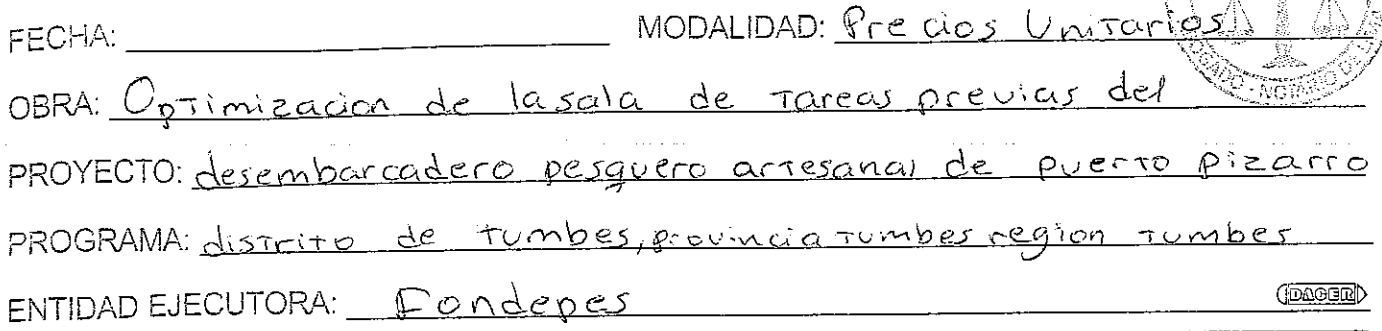 FECHA: MODALIDAD: Precios Unitarios
OBRA: Optimizacion de la sala de tareas previas del
PROYECTO: desembarcadero pesquero artesanal de puerto pizarro
PROGRAMA: distrito de tumbes, provincia tumbes region tumbes
ENTIDAD EJECUTORA: Fondepes
DAGER